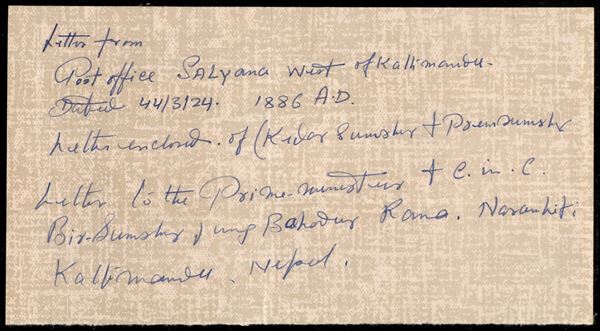 Letter from
Post office SALyANA West of Kathmandu-
Dated 44/3/24. 1886 A.D.
Letter enclosed. of (Kedar Sumsher + Premsumsher
Letter to the Prime-minister + C. in. C.
Bir-Sumsher Jung Bahadur Rana. Naranhiti
Kathmandu. Nepal.